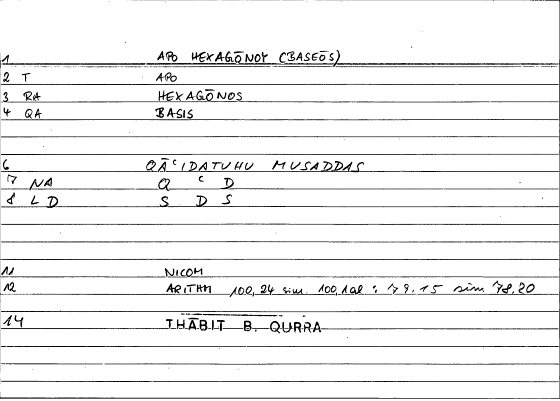 1 APO HEXAGŌNOY (BASEŌS)
2 T APO
3 RA HEXAGŌNOS
4 QA BASIS
6 QĀᶜIDATUHU MUSADDAS
7 NA Q ᶜ D
8 LD S D S
11 NICOM
12 ARITHM 100,24 sim. 100,1al : 79.15 sim 78.20
14 THĀBIT B. QURRA